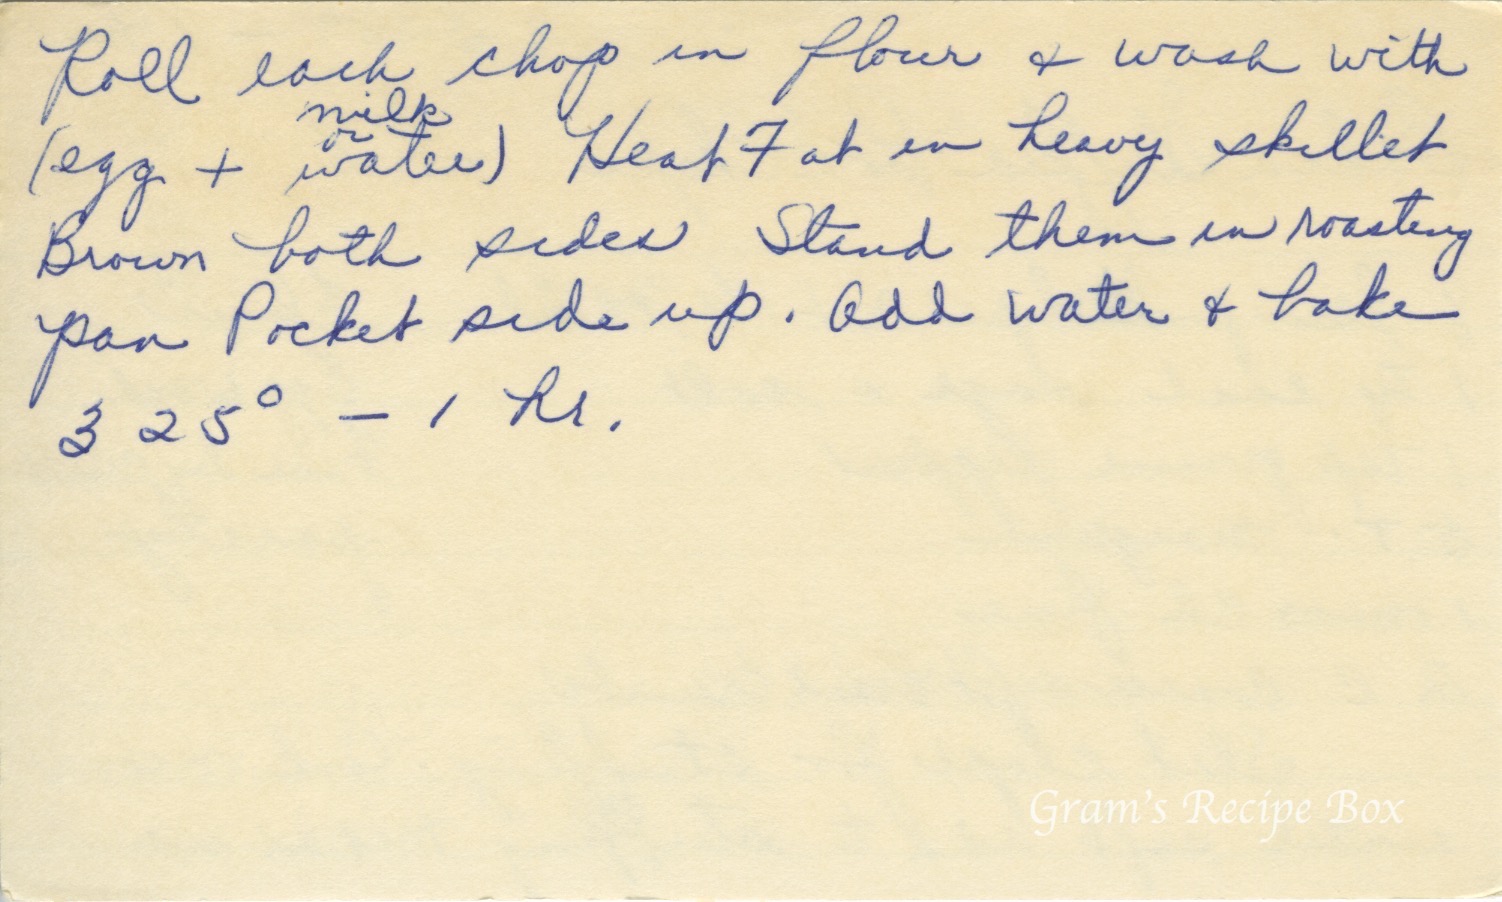 Roll each chop in flour & wash with
milk
or
(egg + water) Heat Fat in heavy skillet
Brown both sides Stand them in roasting
pan Pocket side up. Add water & bake
325° – 1 hr.
Gram's Recipe Box